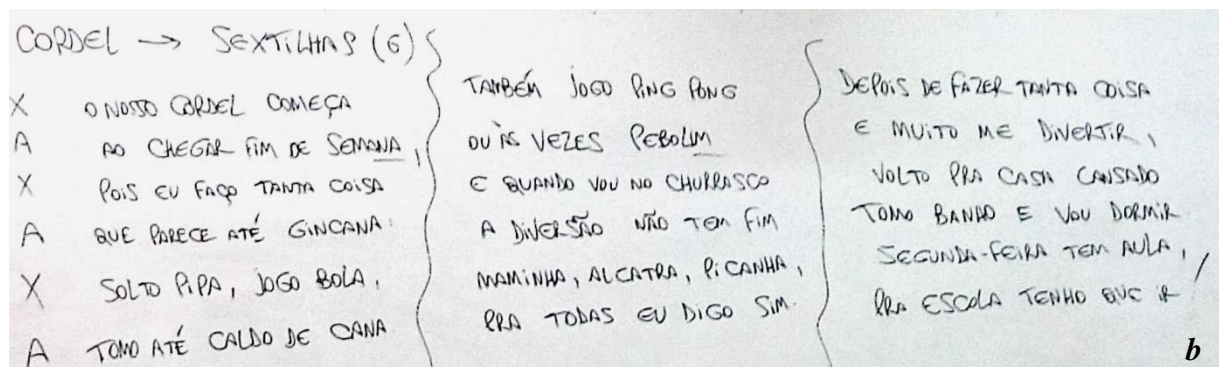 CORDEL → SEXTILHAS (6)
X O NOSSO CORDEL COMEÇA
A AO CHEGAR FIM DE SEMANA,
X POIS EU FAÇO TANTA COISA
A QUE PARECE ATÉ GINCANA:
X SOLTO PIPA, JOGO BOLA,
A TOMO ATÉ CALDO DE CANA
TAMBÉM JOGO PING PONG
OU ÀS VEZES PEBOLIM
E QUANDO VOU NO CHURRASCO
A DIVERSÃO NÃO TEM FIM
MAMINHA, ALCATRA, PICANHA,
PRA TODAS EU DIGO SIM.
DEPOIS DE FAZER TANTA COISA
E MUITO ME DIVERTIR,
VOLTO PRA CASA CANSADO
TOMO BANHO E VOU DORMIR
SEGUNDA-FEIRA TEM AULA,
PRA ESCOLA TENHO QUE IR
b